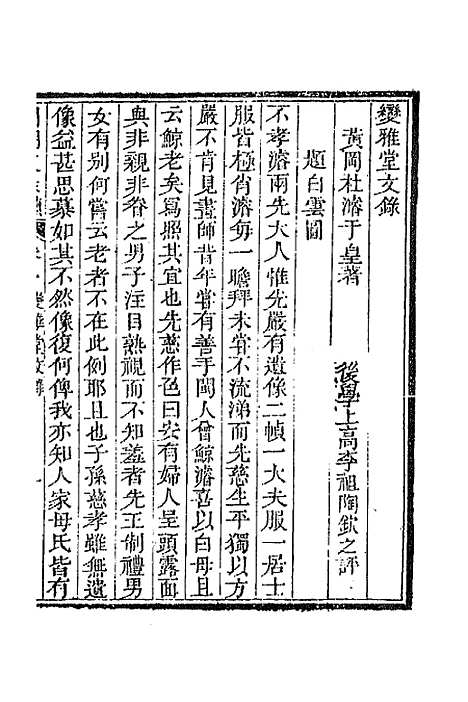 變雅堂文錄
黃岡杜濬于皇著
後學上高李祖陶欽之評
題白雲圖
不孝濬兩先大人惟先嚴有遺像二幀一大夫服一居士
服皆極肖濬每一瞻拜未嘗不流涕而先慈生平獨以方
嚴不肯見畫師昔年嘗有善手閩人曾鯨濬喜以白母且
云鯨老矣爲照其宜也先慈作色曰安有婦人呈頭露面
與非親非眷之男子注目熟視而不知羞者先王制禮男
女有別何嘗云老者不在此例耶且也子孫慈孝雖無遺
像益甚思慕如其不然像復何俾我亦知人家母氏皆有
變雅堂文錄